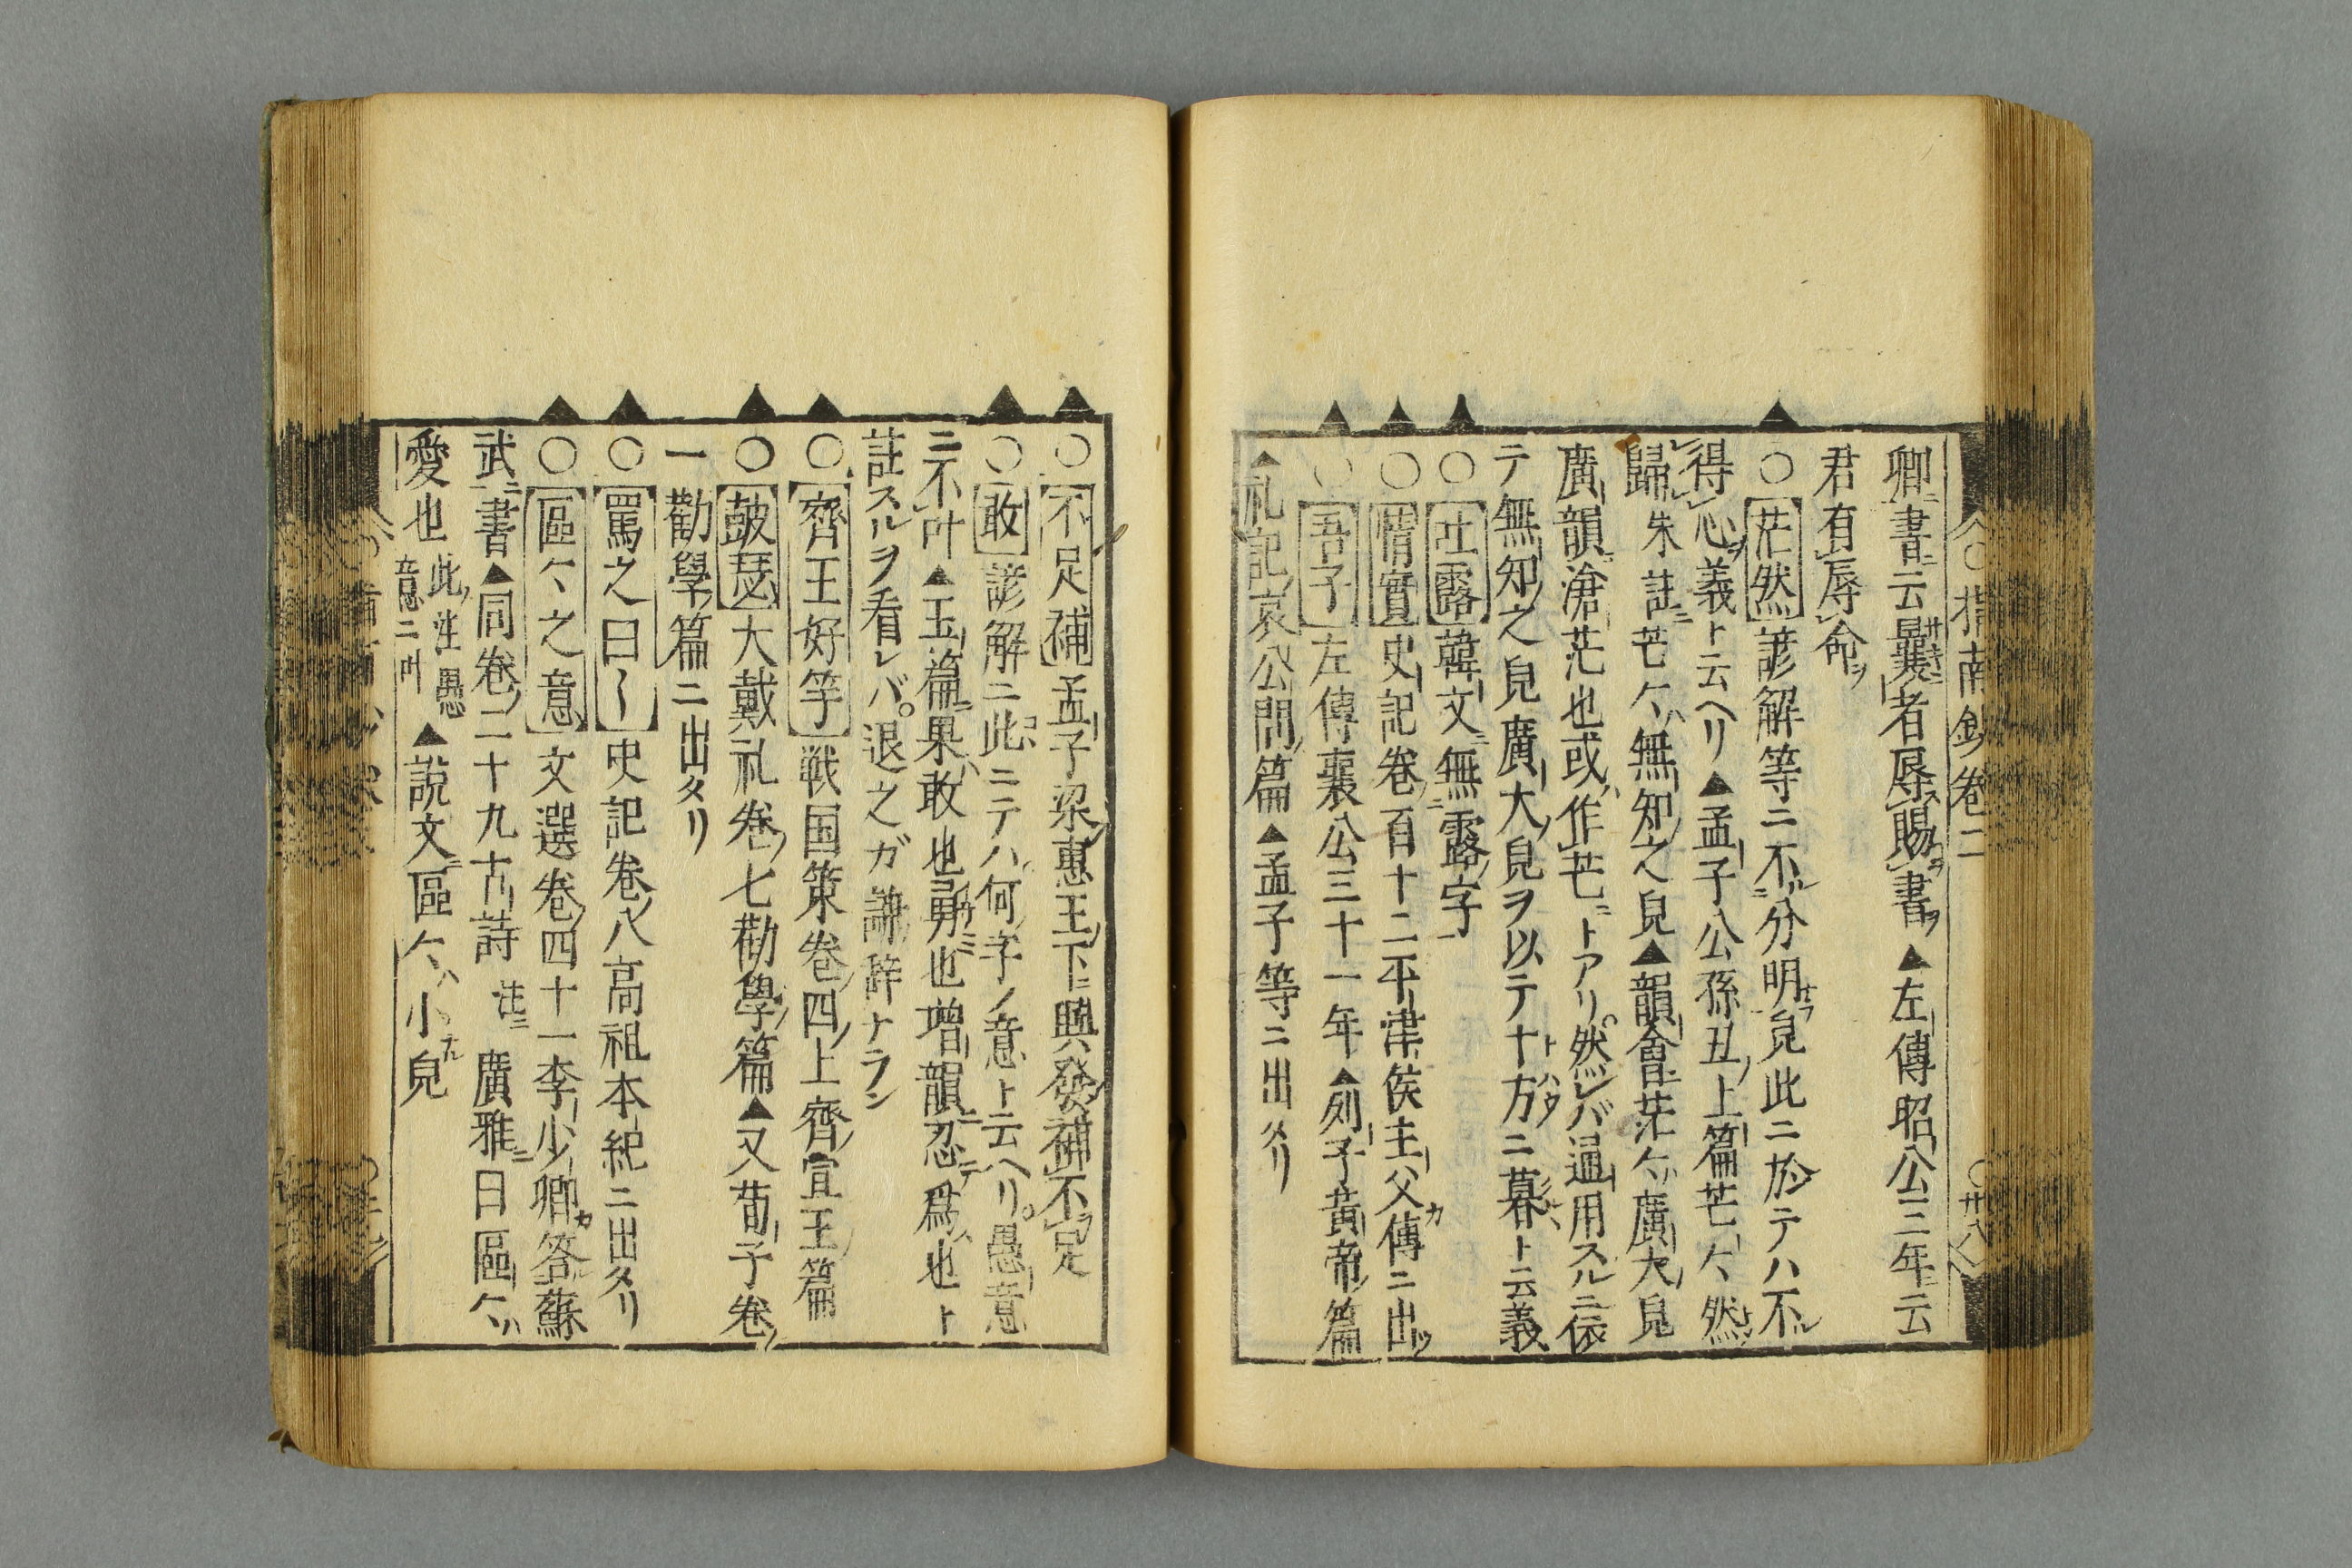 指南鈔卷二 〇卅八
卿書云曩者辱賜書▲左傳昭公三年云
君有辱命
〇茫然 諺解等ニ不分明皃此ニ於テハ不
得心義ト云ヘリ▲孟子公孫丑上篇芒〻然
歸朱註芒〻無知之皃▲韻會茫〻廣大皃
廣韻滄茫也或作芒トアリ然レバ通用スルニ依
テ無知之皃廣大皃ヲ以テ十方ニ暮ト云義
〇吐露 韓文無露字
〇情實 史記卷百十二平津侯主父傳ニ出
〇吾子 左傳襄公三十一年▲列子黃帝篇
▲礼記哀公問篇▲孟子等ニ出タリ
〇不足補 孟子梁惠王下興發補不足
〇敢 諺解ニ此ニテハ何字ノ意ト云ヘリ愚意
ニ不叶▲玉篇果敢也勇也增韻忍爲也ト
註スルヲ看レバ退之ガ謙辞ナラン
〇齊王好竽 戦国策卷四上齊宣王篇
〇鼓瑟 大戴礼卷七勸學篇▲又荀子卷
一勸學篇ニ出タリ
〇罵之曰〱 史記卷八高祖本紀ニ出タリ
〇區〻之意 文選卷四十一李少卿答蘇
武書▲同卷二十九古詩註廣雅曰區〻
愛也此注愚意ニ叶▲說文區〻小皃